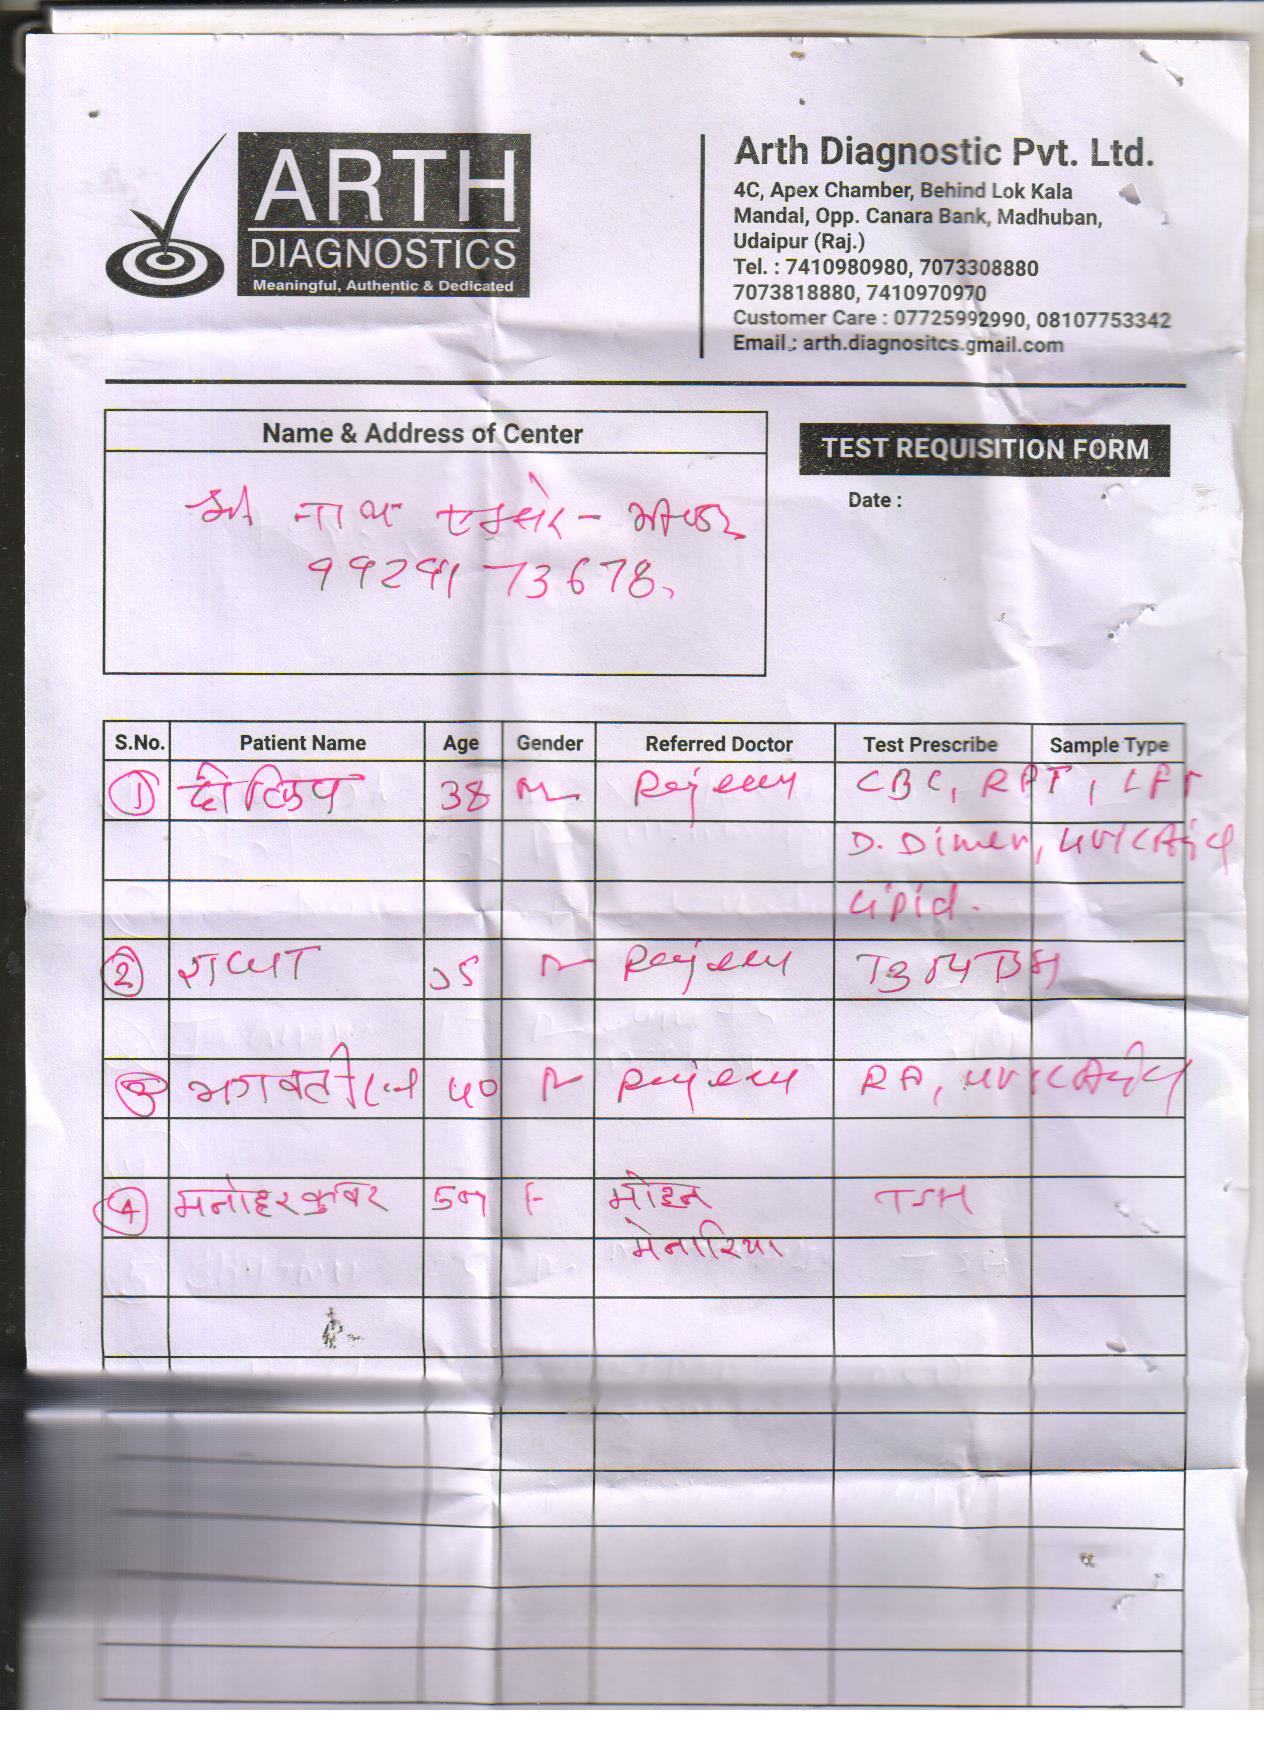 ARTH
DIAGNOSTICS
Meaningful, Authentic & Dedicated
Arth Diagnostic Pvt. Ltd.
4C, Apex Chamber, Behind Lok Kala
Mandal, Opp. Canara Bank, Madhuban,
Udaipur (Raj.)
Tel. : 7410980980, 7073308880
7073818880, 7410970970
Customer Care : 07725992990, 08107753342
Email.: arth.diagnositcs.gmail.com
Name & Address of Center
TEST REQUISITION FORM
Date :
श्री नाथ एक्सरे -
S.No. Patient Name Age Gender Referred Doctor Test Prescribe Sample Type
1 38 M CBC, RFT, LFT
D. Dimer,
Lipid.
2 M
3 40 M RA,
4 मनोहर कुंवर F मोहन TSH
मेनारिया